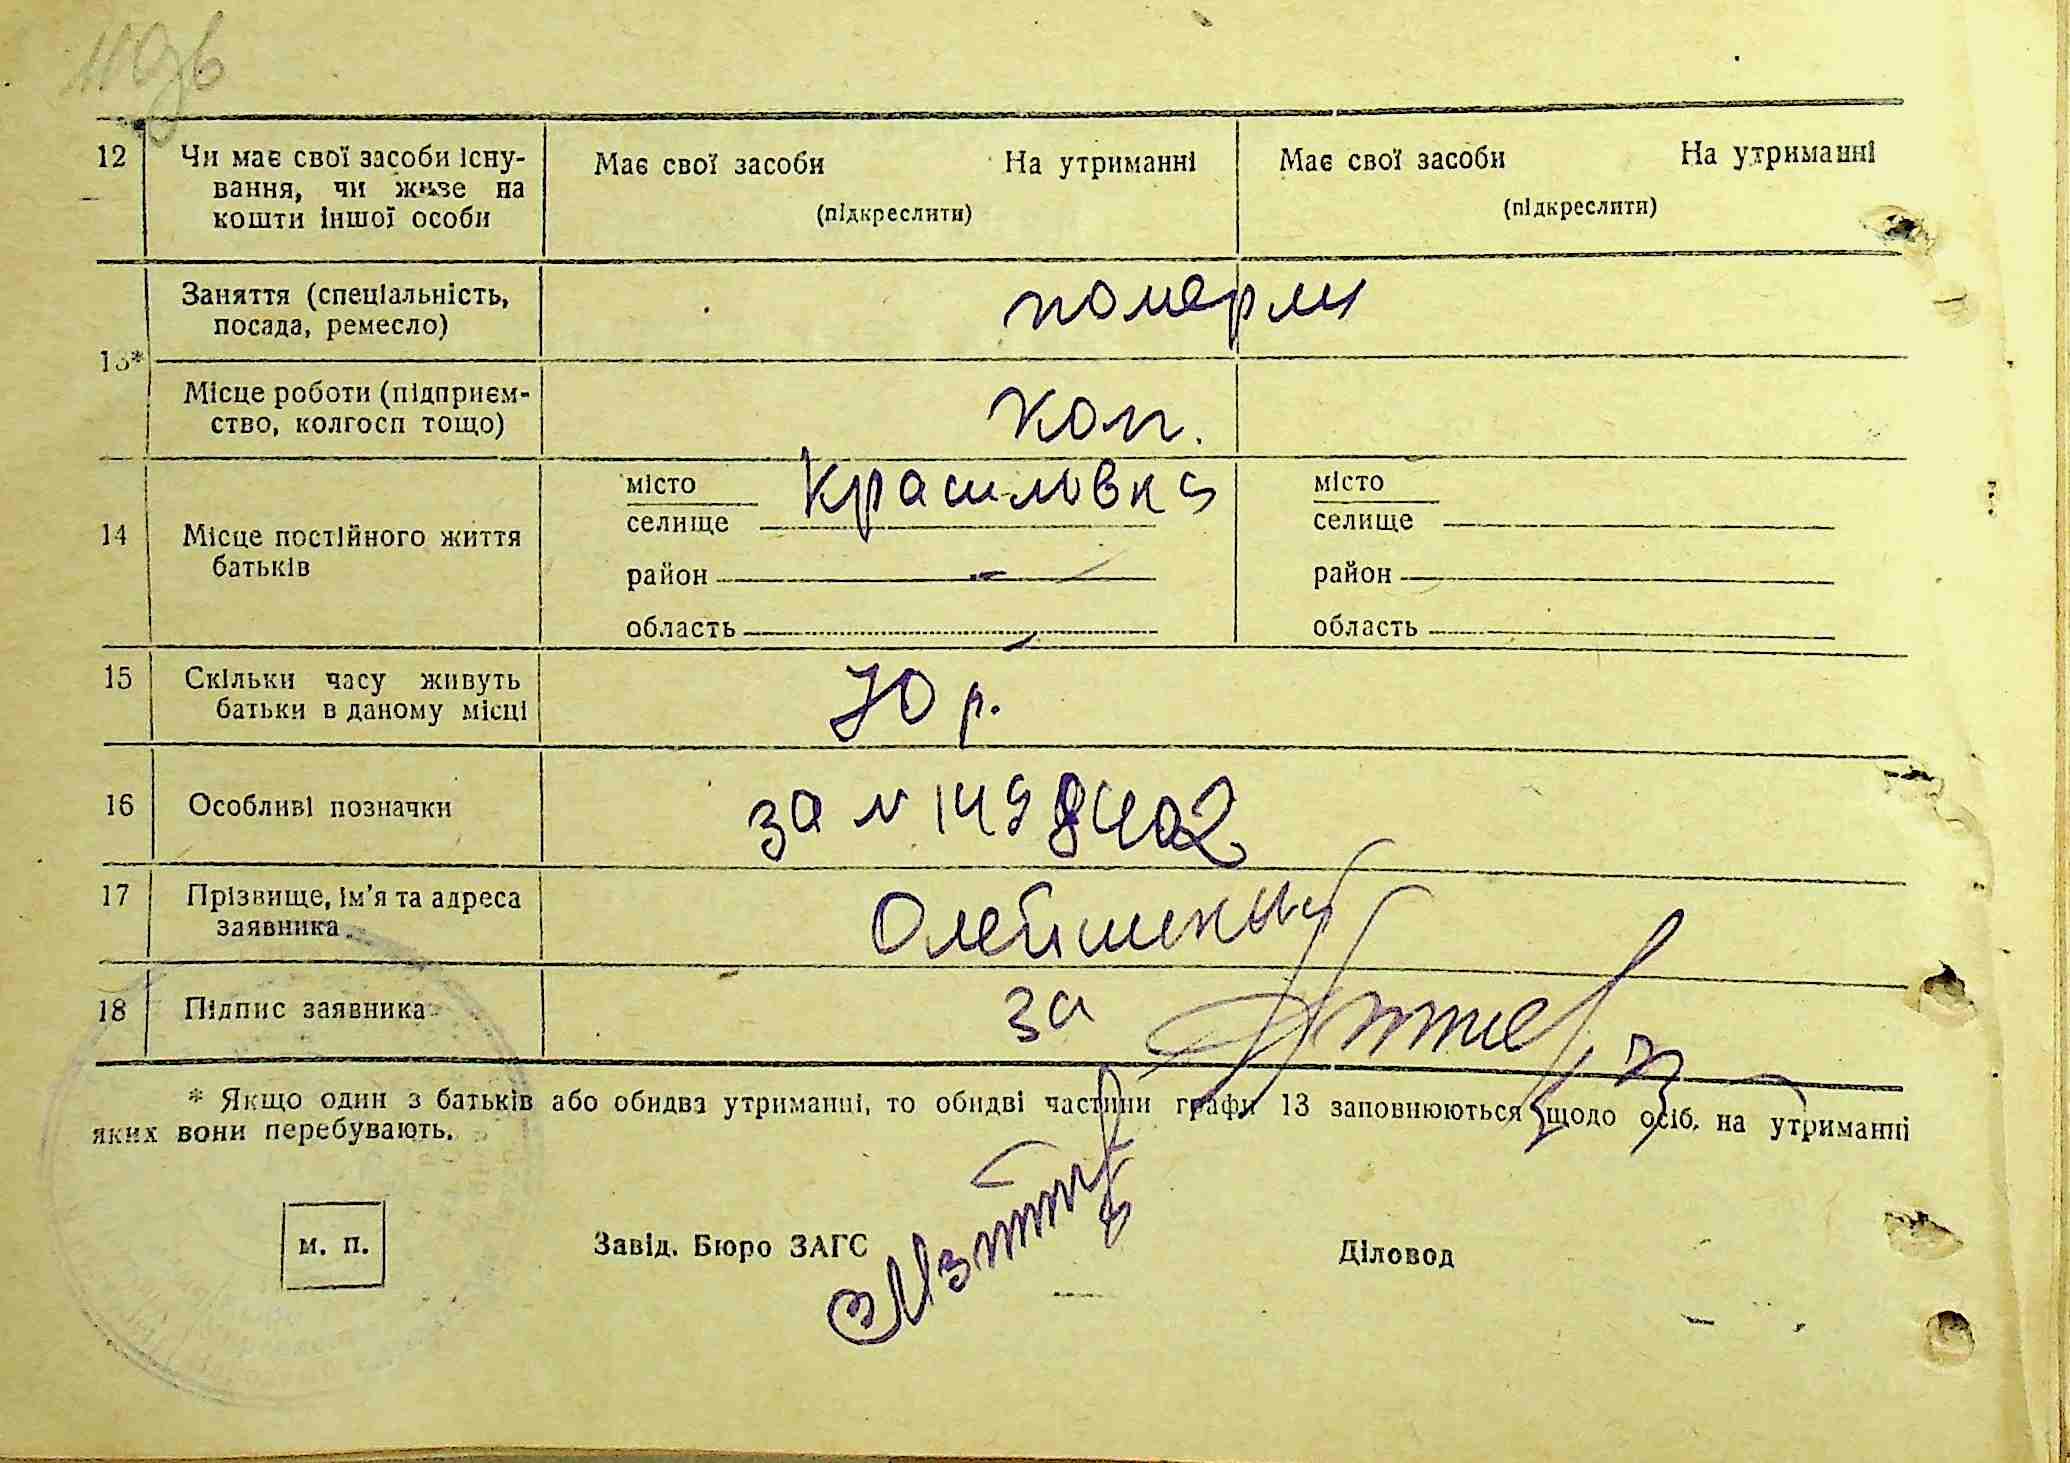 12 Чи має свої засоби існу-
вання, чи живе на
кошти іншої особи
Має свої засоби На утриманні
(підкреслити)
Має свої засоби На утриманні
(підкреслити)
13*
Заняття (спеціальність,
посада, ремесло)
померли
Місце роботи (підприєм-
ство, колгосп тощо)
кол.
14 Місце постійного життя
батьків
місто
селище Красиловка
район
область
місто
селище
район
область
15 Скільки часу живуть
батьки в даному місці
70 р.
16 Особливі позначки
за N 1498402
17 Прізвище, ім'я та адреса
заявника
18 Підпис заявника
за
* Якщо один з батьків або обидва утриманні, то обидві частини графи 13 заповнюються щодо осіб, на утриманні
яких вони перебувають.
м. п.
Завід. Бюро ЗАГС
Діловод